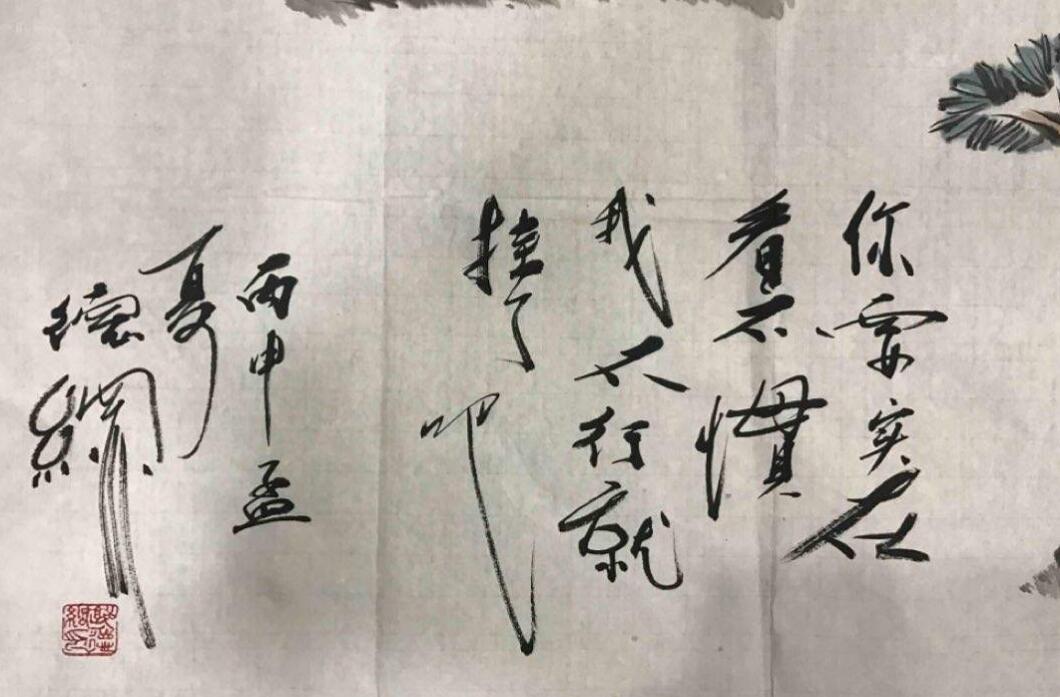 你要实在
看不惯
我不行就
挂了吧
丙申孟
夏
德纲